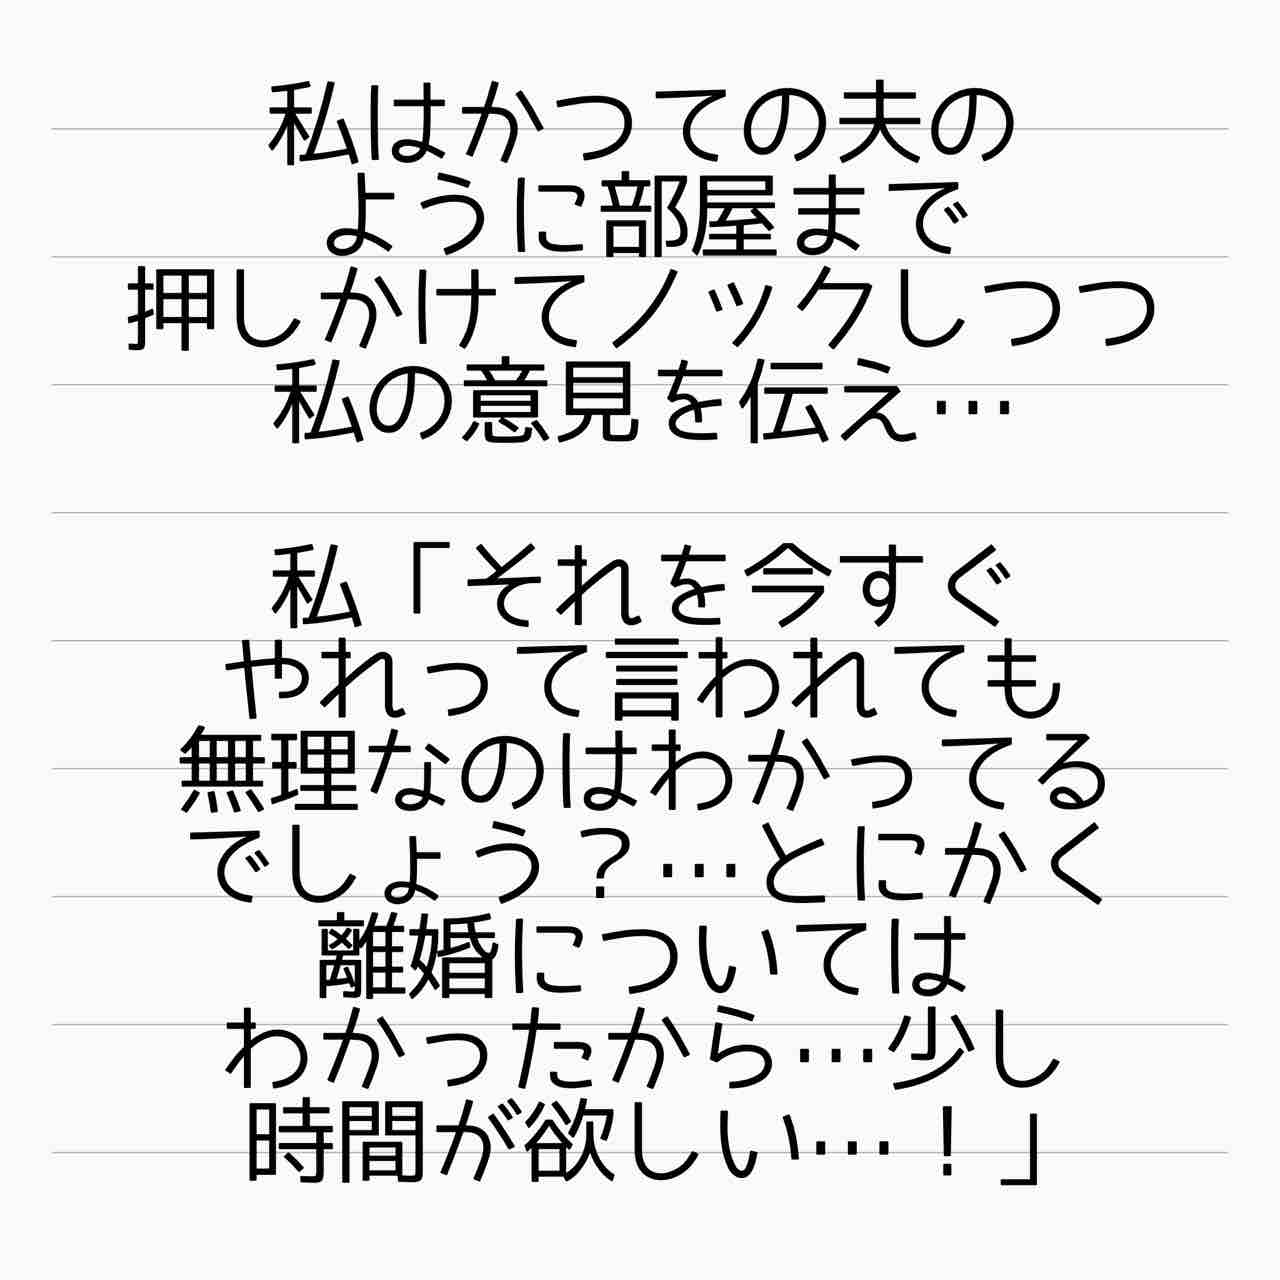 私はかつての夫の
ように部屋まで
押しかけてノックしつつ
私の意見を伝え…
私「それを今すぐ
やれって言われても
無理なのはわかってる
でしょう？…とにかく
離婚については
わかったから…少し
時間が欲しい…！」